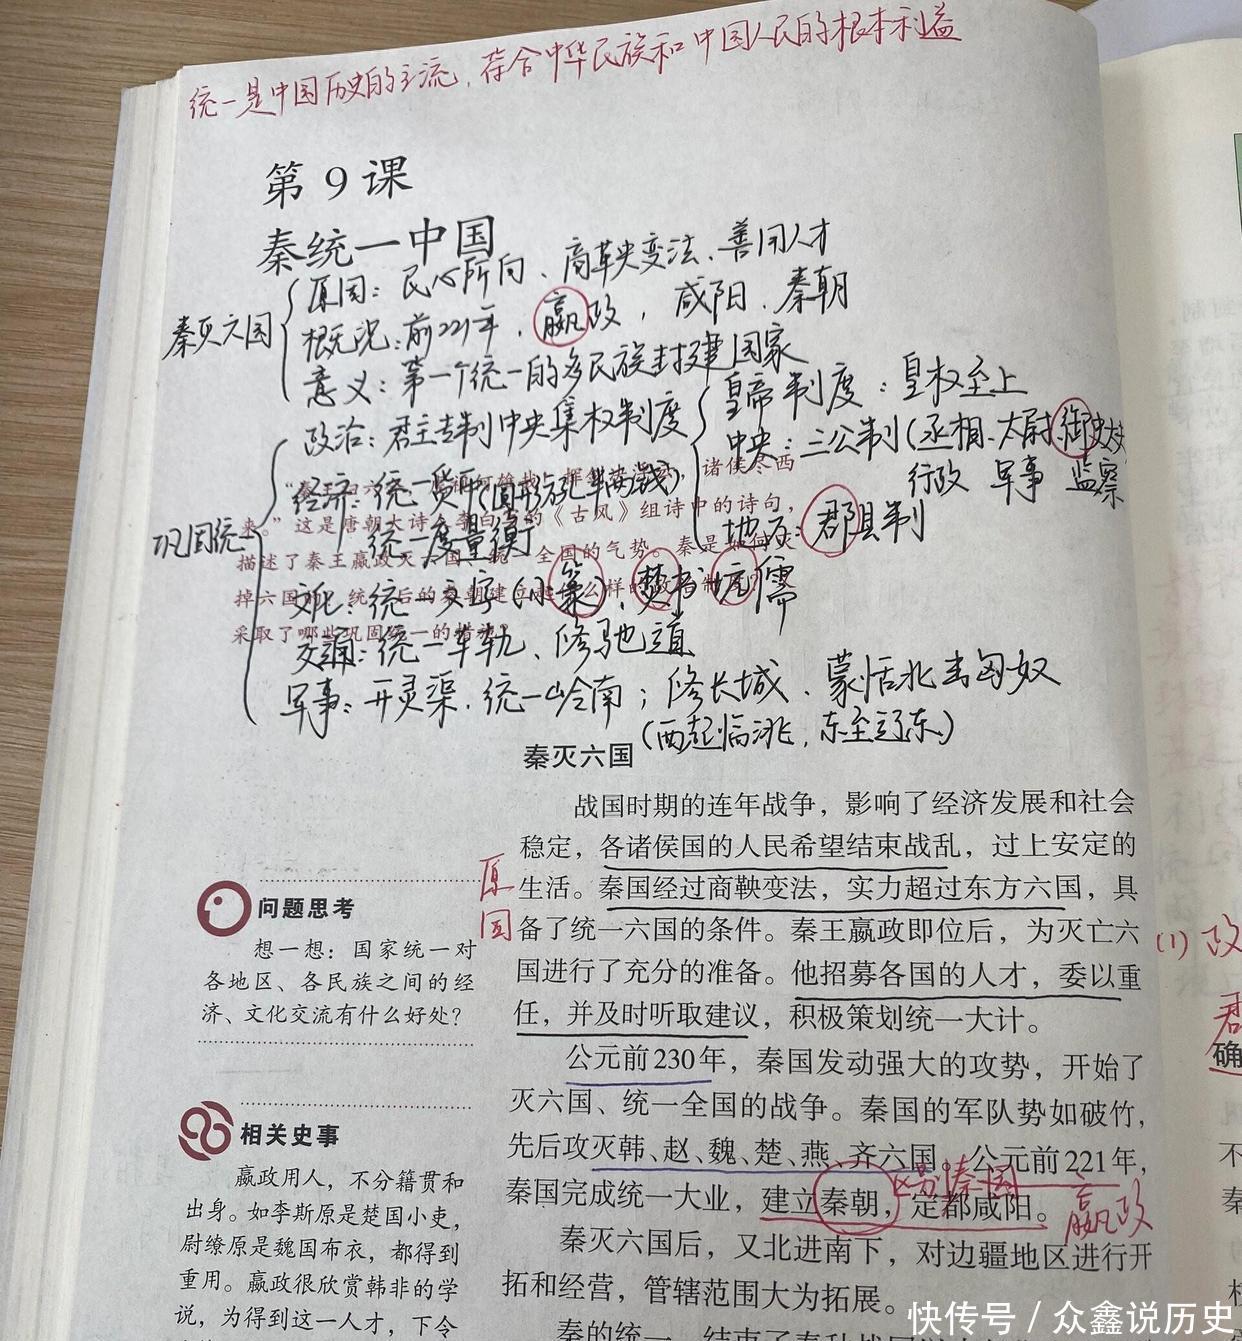 统一是中国历史的主流，符合中华民族和中国人民的根本利益
第 9 课
秦统一中国
秦灭六国
原因：民心所向、商鞅变法、善用人才
概况：前221年，嬴政，咸阳、秦朝
意义：第一个统一的多民族封建国家
巩固统一
政治：君主专制中央集权制度
皇帝制度：皇权至上
中央：三公制（丞相、太尉、御史大夫
行政 军事 监察
地方：郡县制
经济：统一货币（圆形方孔半两钱）
统一度量衡
文化：统一文字（小篆）、焚书坑儒
交通：统一车轨、修驰道
军事：开灵渠、统一岭南；修长城、蒙恬北击匈奴
（西起临洮，东至辽东）
诸侯尽西
来。”这是唐朝大诗人李白的《古风》组诗中的诗句，
描述了秦王嬴政灭 全国的气势。秦是如何灭
掉六国 统一后的秦朝建立起 么样的
采取了哪些巩固统一的措施？
秦灭六国
战国时期的连年战争，影响了经济发展和社会
稳定，各诸侯国的人民希望结束战乱，过上安定的
生活。秦国经过商鞅变法，实力超过东方六国，具
备了统一六国的条件。秦王嬴政即位后，为灭亡六
国进行了充分的准备。他招募各国的人才，委以重
任，并及时听取建议，积极策划统一大计。
原
因
公元前230年，秦国发动强大的攻势，开始了
灭六国、统一全国的战争。秦国的军队势如破竹，
先后攻灭韩、赵、魏、楚、燕、齐六国。公元前221年，
区别“秦国”
秦国完成统一大业，建立秦朝，定都咸阳。
嬴政
秦灭六国后，又北进南下，对边疆地区进行开
拓和经营，管辖范围大为拓展。
秦的统一，结束了春秋战国
问题思考
想一想：国家统一对
各地区、各民族之间的经
济、文化交流有什么好处？
相关史事
嬴政用人，不分籍贯和
出身。如李斯原是楚国小吏，
尉缭原是魏国布衣，都得到
重用。嬴政很欣赏韩非的学
说，为得到这一人才，下令
(1) 政
君
确
快传号 / 众鑫说历史